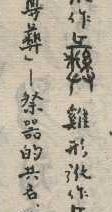 作 雞形 作
尊彝”—祭器的共名